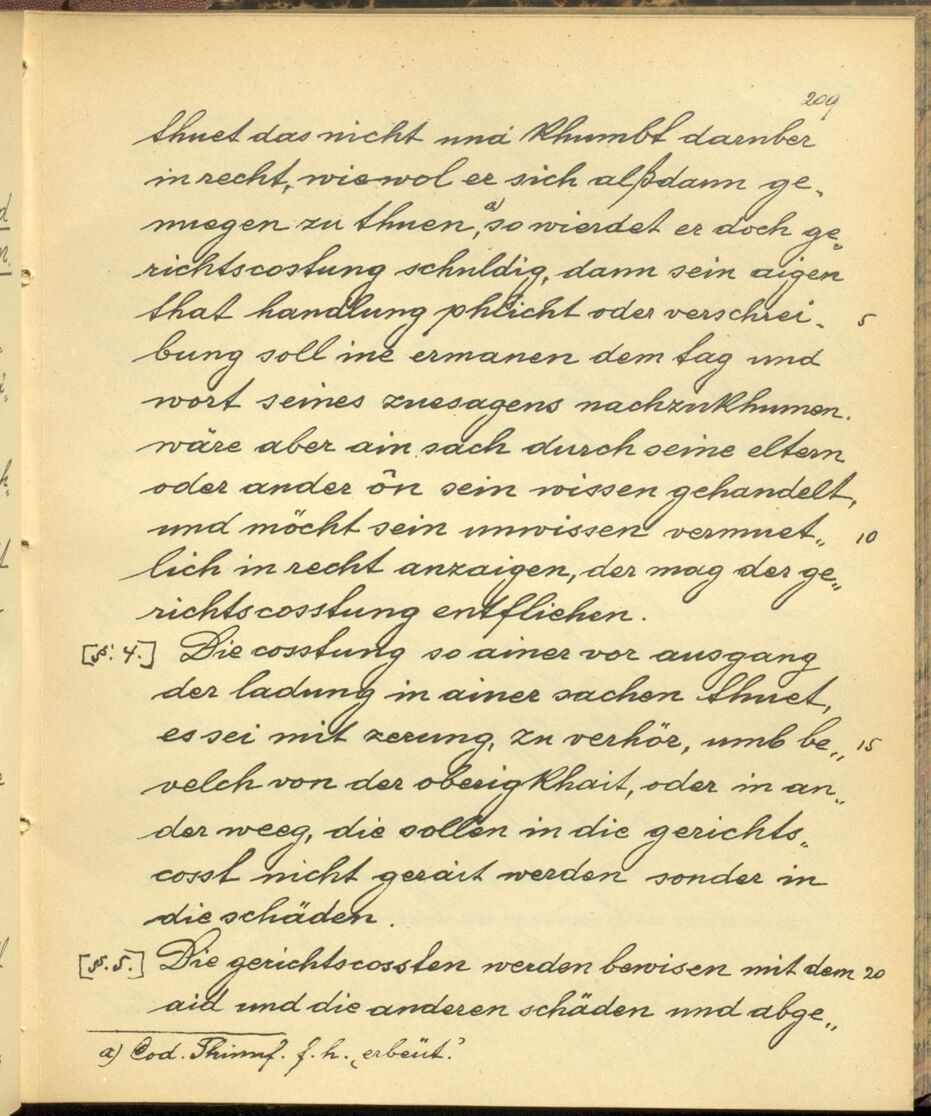 209
thuet das nicht und khumbt daruber
in recht, wiewol er sich alßdann ge-
nuegen zu thuen,a) so wierdet er doch ge„
richtscostung schuldig, dann sein aigen
that handlung phlicht oder verschrei- 5
bung soll ine ermanen dem tag und
wort seines zuesagens nachzukhumen.
wäre aber ain sach durch seine eltern
oder ander ôn sein wissen gehandelt,
und möcht sein unwissen vermuet„ 10
lich in recht anzaigen, der mag der ge„
richtscosstung entfliehen.
[§. 4.] Die cosstung so ainer vor ausgang
der ladung in ainer sachen thuet,
es sei mit zerung, zu verhör, umb be„ 15
velch von der oberigkhait, oder in an„
der weeg, die sollen in die gerichts„
cosst nicht gerait werden sonder in
die schäden.
[§. 5.] Die gerichtscossten werden bewisen mit dem 20
aid und die anderen schäden und abge„
a) Cod. f. h. „erbeüt.“